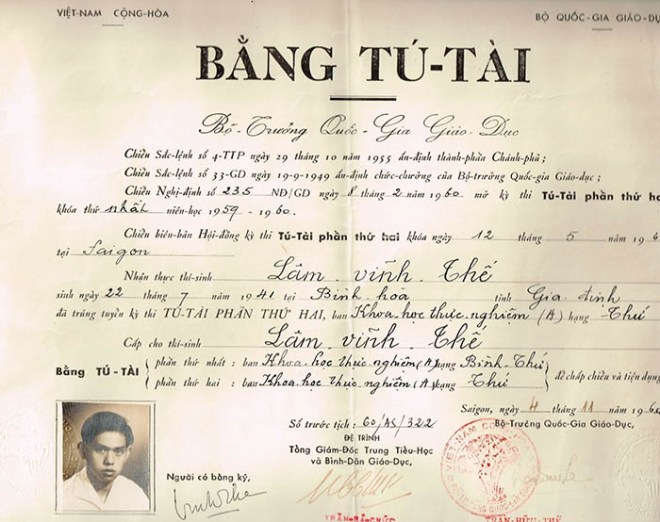 VIỆT-NAM CỘNG-HÒA
BỘ QUỐC-GIA GIÁO-DỤC
BẰNG TÚ-TÀI
Bộ-Trưởng Quốc-Gia Giáo-Dục
Chiếu Sắc-lệnh số 4-TTP ngày 29 tháng 10 năm 1955 ấn-định thành-phần Chánh-phủ ;
Chiếu Sắc-lệnh số 33-GD ngày 19-9-1949 ấn-định chức-chưởng của Bộ-trưởng Quốc-gia Giáo-dục ;
Chiếu Nghị-định số 235 NĐ/GD ngày 8 tháng 2 năm 1960 mở kỳ thi Tú-Tài phần thứ ha
khóa thứ nhất niên-học 1959 - 1960.
Chiếu biên-bản Hội-đồng kỳ thi Tú-Tài phần thứ hai khóa ngày 12 tháng 5 năm 196
tại Saigon
Nhận thực thí-sinh Lâm Vĩnh Thế
sinh ngày 22 tháng 7 năm 1941 tại Bình hòa tỉnh Gia định
đã trúng tuyển kỳ thi TÚ-TÀI PHẦN THỨ HAI, ban Khoa học thực nghiệm (A) hạng Thứ
Cấp cho thí-sinh Lâm Vĩnh Thế
Bằng TÚ-TÀI
phần thứ nhất : ban Khoa học thực nghiệm (A) hạng Bình Thứ
phần thứ hai : ban Khoa học thực nghiệm (A) hạng Thứ
để chấp chiếu và tiện dụng
Saigon, ngày 4 tháng 11 năm 196
Số trước tịch : 60/AS/322
Bộ-Trưởng Quốc-Gia Giáo-Dục,
ĐỆ TRÌNH
Tổng Giám-Đốc Trung Tiểu-Học
và Bình-Dân Giáo-Dục,
Người có bằng ký,
TRẦN-HỮU-THẾ